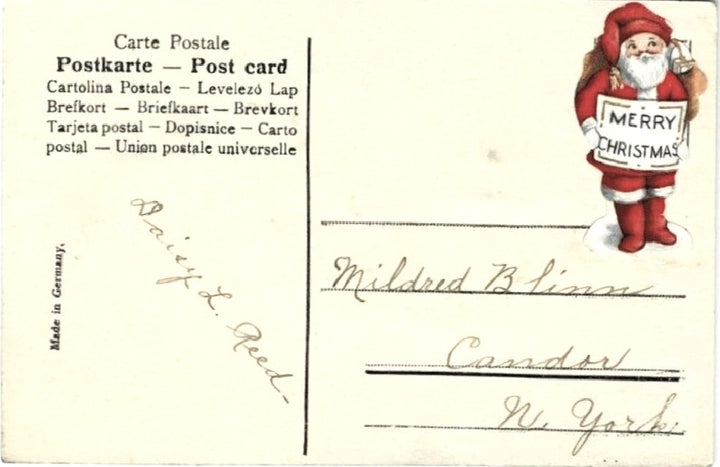 Carte Postale
Postkarte — Post card
Cartolina Postale — Levelező Lap
Brefkort — Briefkaart — Brevkort
Tarjeta postal — Dopisnice — Carto
postal — Union postale universelle
Made in Germany,
Daisy L. Reed-
MERRY
CHRISTMAS
Mildred Blinn
Candor
N. York.